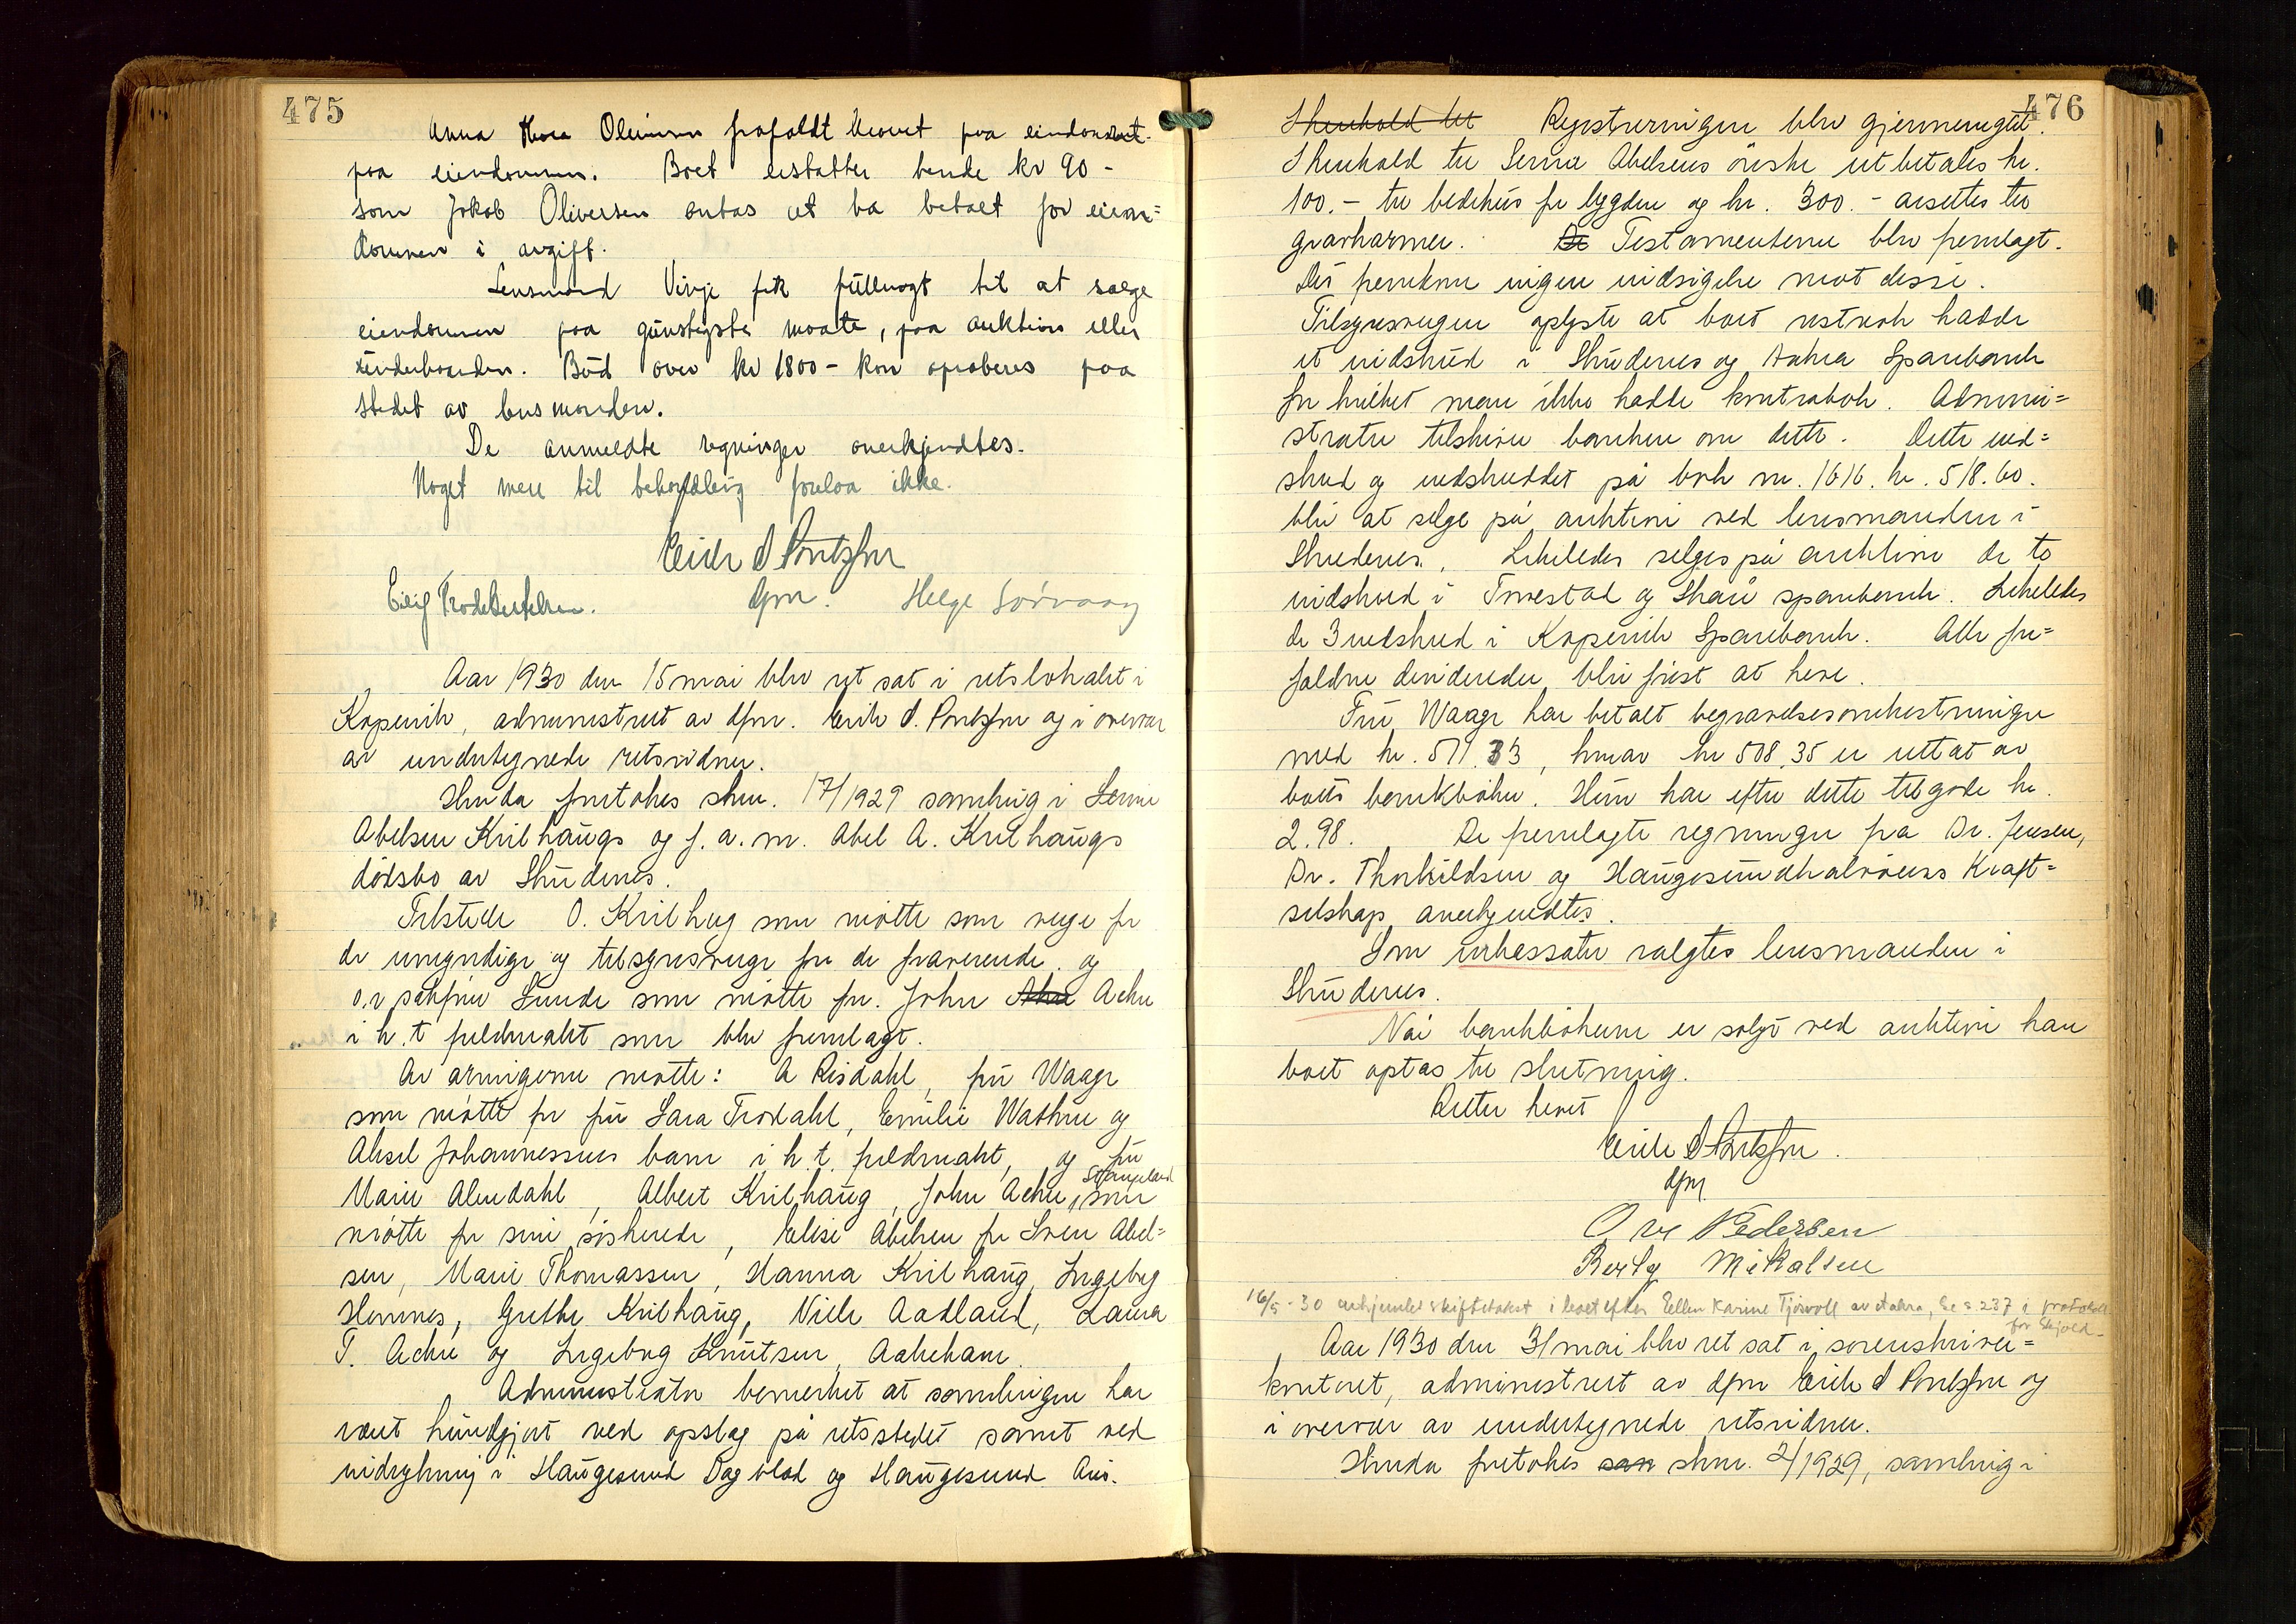 475
Anna Oliversen frafaldt kravet paa eiendomsret
paa eiendommen. Boet erstatter hende kr 90 -
som Jokob Oliversen antas at ha betalt for eien=
dommen i avgift.
Lensmand Vinje fik fullmagt til at sælge
eiendommen paa gunstigste maate, paa auktion eller
underhaanden. Bud over kr 1800 - kan aproberes paa
stedet av lensmanden.
De anmeldte regninger anerkjendtes.
Noget mere til behandling forelaa ikke.
Eirik S Pontzfm
dfm. Helge Sørvaag
Aar 1930 den 15 mai blev ret sat i retslokalet i
Kopervik, administrert av dfm. Eirik S. Pontzfm og i overvær
av undertegnede retsvidner.
Herunder foretokes skm. 17/1929 samling i Serine
Abelsen Kvilhaugs og f. a. m. Abel A. Kvilhaugs
dødsbo av Skudenes.
Tilstede O. Kvilhug som møtte som verge for
de umyndige og tilsynsverge for de fraværende. og
o.r sakfører Lunde som møtte for. John Acke
i h. t fuldmakt som blev fremlagt.
Av arvingerne møtte: A Risdahl, fru Waage
som møtte for fru Sara Trovahl, Emilie Wathne og
Aksel Johannessens barn i h. t. fuldmakt, og fru
Marie Alendahl, Albert Kvilhaug, John Acke, Stangeland som
møtte for sine søskende, Elise Abelsen for Sven Abel=
sen, Marie Thomassen, Hanna Kvilhaug, Ingeborg
Hemnes, Grethe Kvilhaug, Niels Aadland, Laura
T. Acke og Ingeborg Knutsen, Aakeham.
Administrator bemerket at samlingen har
været kundgjort ved opslag på retsstedet samt ved
indrykning i Haugesund Dagblad og Haugesund Avis.
476
I henhold til Registreringen blev gjennemgåt.
I henhold til Serine Abelsens ønske utbetales kr.
100.- til bedehus for bygden og kr. 300.- avsettes til
gravharmer. De Testamenterne blev fremlagt.
Det fremkom ingen indsigelse mot disse.
Tilsynsvergen oplyste at boet ustrak hadde
et indskud i Skudenes og Aakra Sparebank
for hvilket man ikke hadde kontrabok. Admini=
strator tilskriver banken om dette. Dette ind=
skud og indskuddet på bok nr. 1616. kr. 518.60.
blir at selge på auktion ved lensmanden i
Skudenes. Likeledes selges på auktion de to
indskud i Torvestad og Skåre sparebank. Likeledes
de 3 indskud i Kopervik Sparebank. Alle for=
faldne dividender blir først at heve.
Fru Waage har betalt begravelsesomkostninger
med kr. 511.33, hvorav kr 508.35 er uttat av
boets bankbøker. Hun har efter dette tilgode kr.
2.98. De fremlagte regninger fra Dr. Jensen,
Dr. Thorkildsen og Haugesundhalvøens Kraft=
selskap anerkjendtes.
Som inkassator valgtes lensmanden i
Skudenes.
Når bankbøkerne er solgt ved auktion kan
boet optas til slutning.
Retten hevet
Eirik S Pontzfm.
dfm
Ove Pedersen
Berly Mikalsen
16/5 - 30 avhjemlet skiftetakst i boet efter Ellen Karine Tjøsvoll av Aakra, se s. 237 i protokol
for Skjold.
Aar 1930 den 31 mai blev ret sat i sorenskriver=
kontoret, administrert av dfm Eirik S Pontzfm og
i overvær av undertegnede retsvidner.
Herunder foretokes skm. 2/1929, samling i